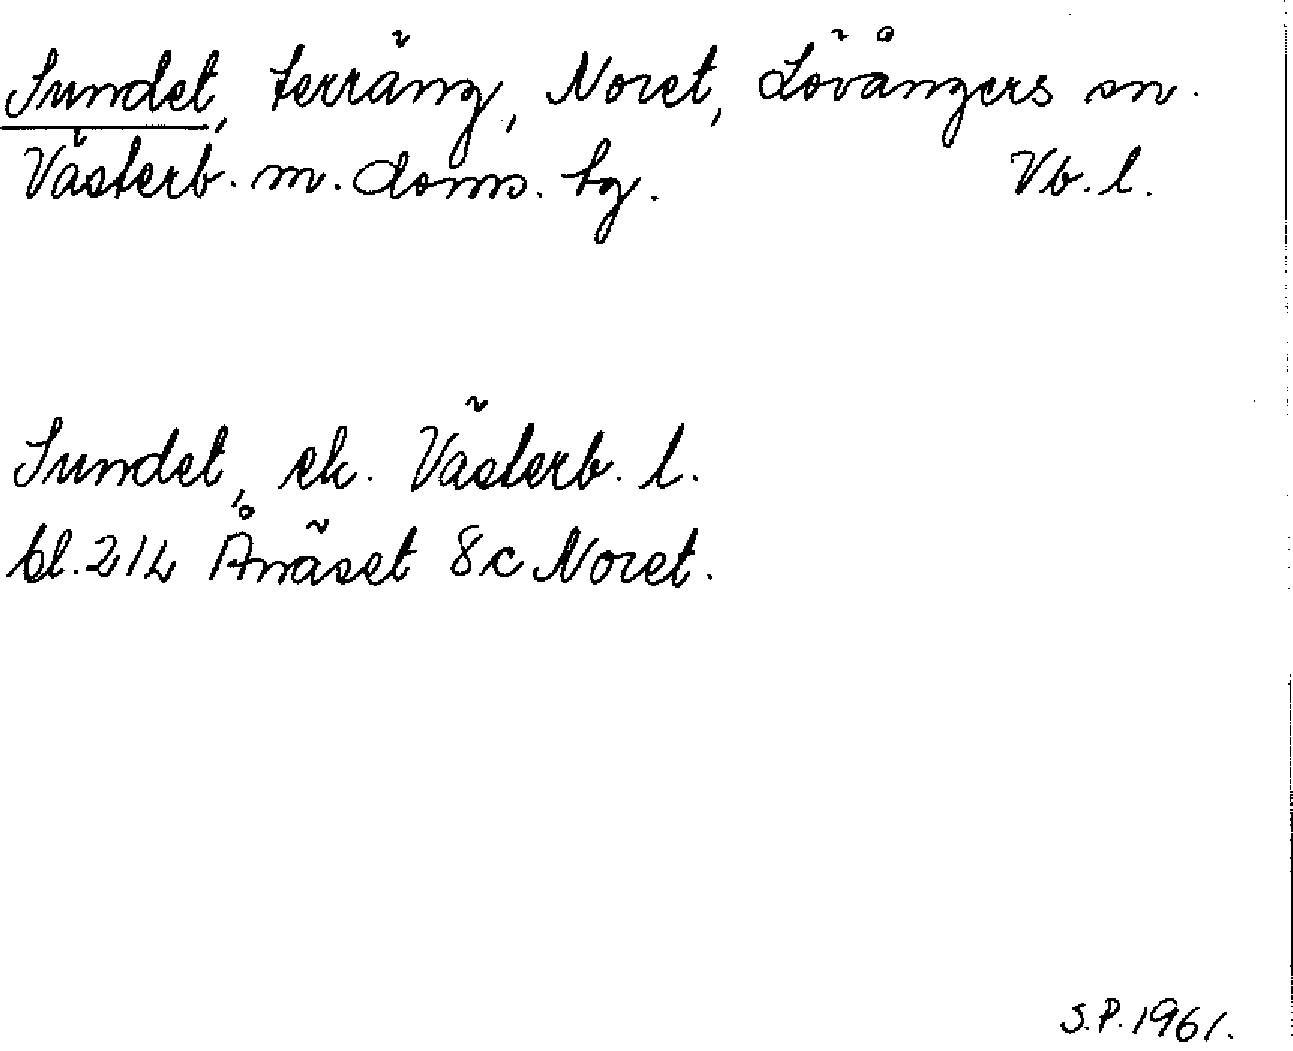 Sundet, terräng, Noret, Lövångers sn.
Västerb. m. doms. tg. Vb. l.
Sundet, ek. Västerb. l.
bl. 214 Ånäset 8c Noret.
S.P. 1961.